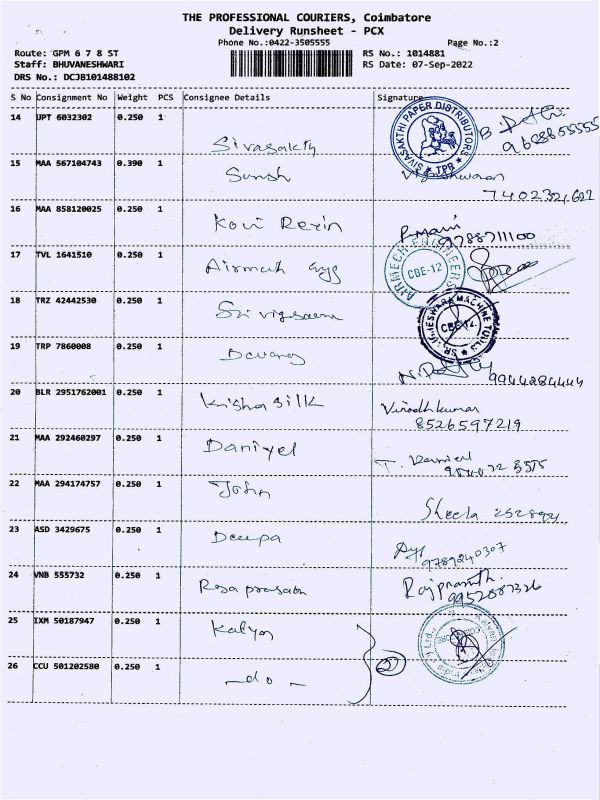 THE PROFESSIONAL COURIERS, Coimbatore
Delivery Runsheet - PCX
Phone No.:0422-3505555 Page No.:2
Route: GPM 6 7 8 ST RS No.: 1014881
Staff: BHUVANESHWARI RS Date: 07-Sep-2022
DRS No.: DCJB101488102
S No Consignment No Weight PCS Consignee Details Signature
14 UPT 6032302 0.250 1 Sivasakthy
SIVASAKTHI PAPER DISTRIBUTORS
TPR
15 MAA 567104743 0.390 1 Suresh
7402321622
16 MAA 858120025 0.250 1 Kovi Rexin P. Mani
9788711100
17 TVL 1641510 0.250 1 Airmech
AIRMECH ENGINEERS
CBE-12
18 TRZ 42442530 0.250 1
MACHINE TOOLS
CBE-12
19 TRP 7860008 0.250 1
9944284444
20 BLR 2951762001 0.250 1 Krisha silk Vinodh kumar
8526597219
21 MAA 292460297 0.250 1 Daniyel T. Daniel
22 MAA 294174757 0.250 1 John
Sheela
23 ASD 3429675 0.250 1 Deepa
9789240307
24 VNB 555732 0.250 1 Rajprasanth
9952087326
25 IXM 50187947 0.250 1 Kalyan
26 CCU 501202580 0.250 1 - do - 2